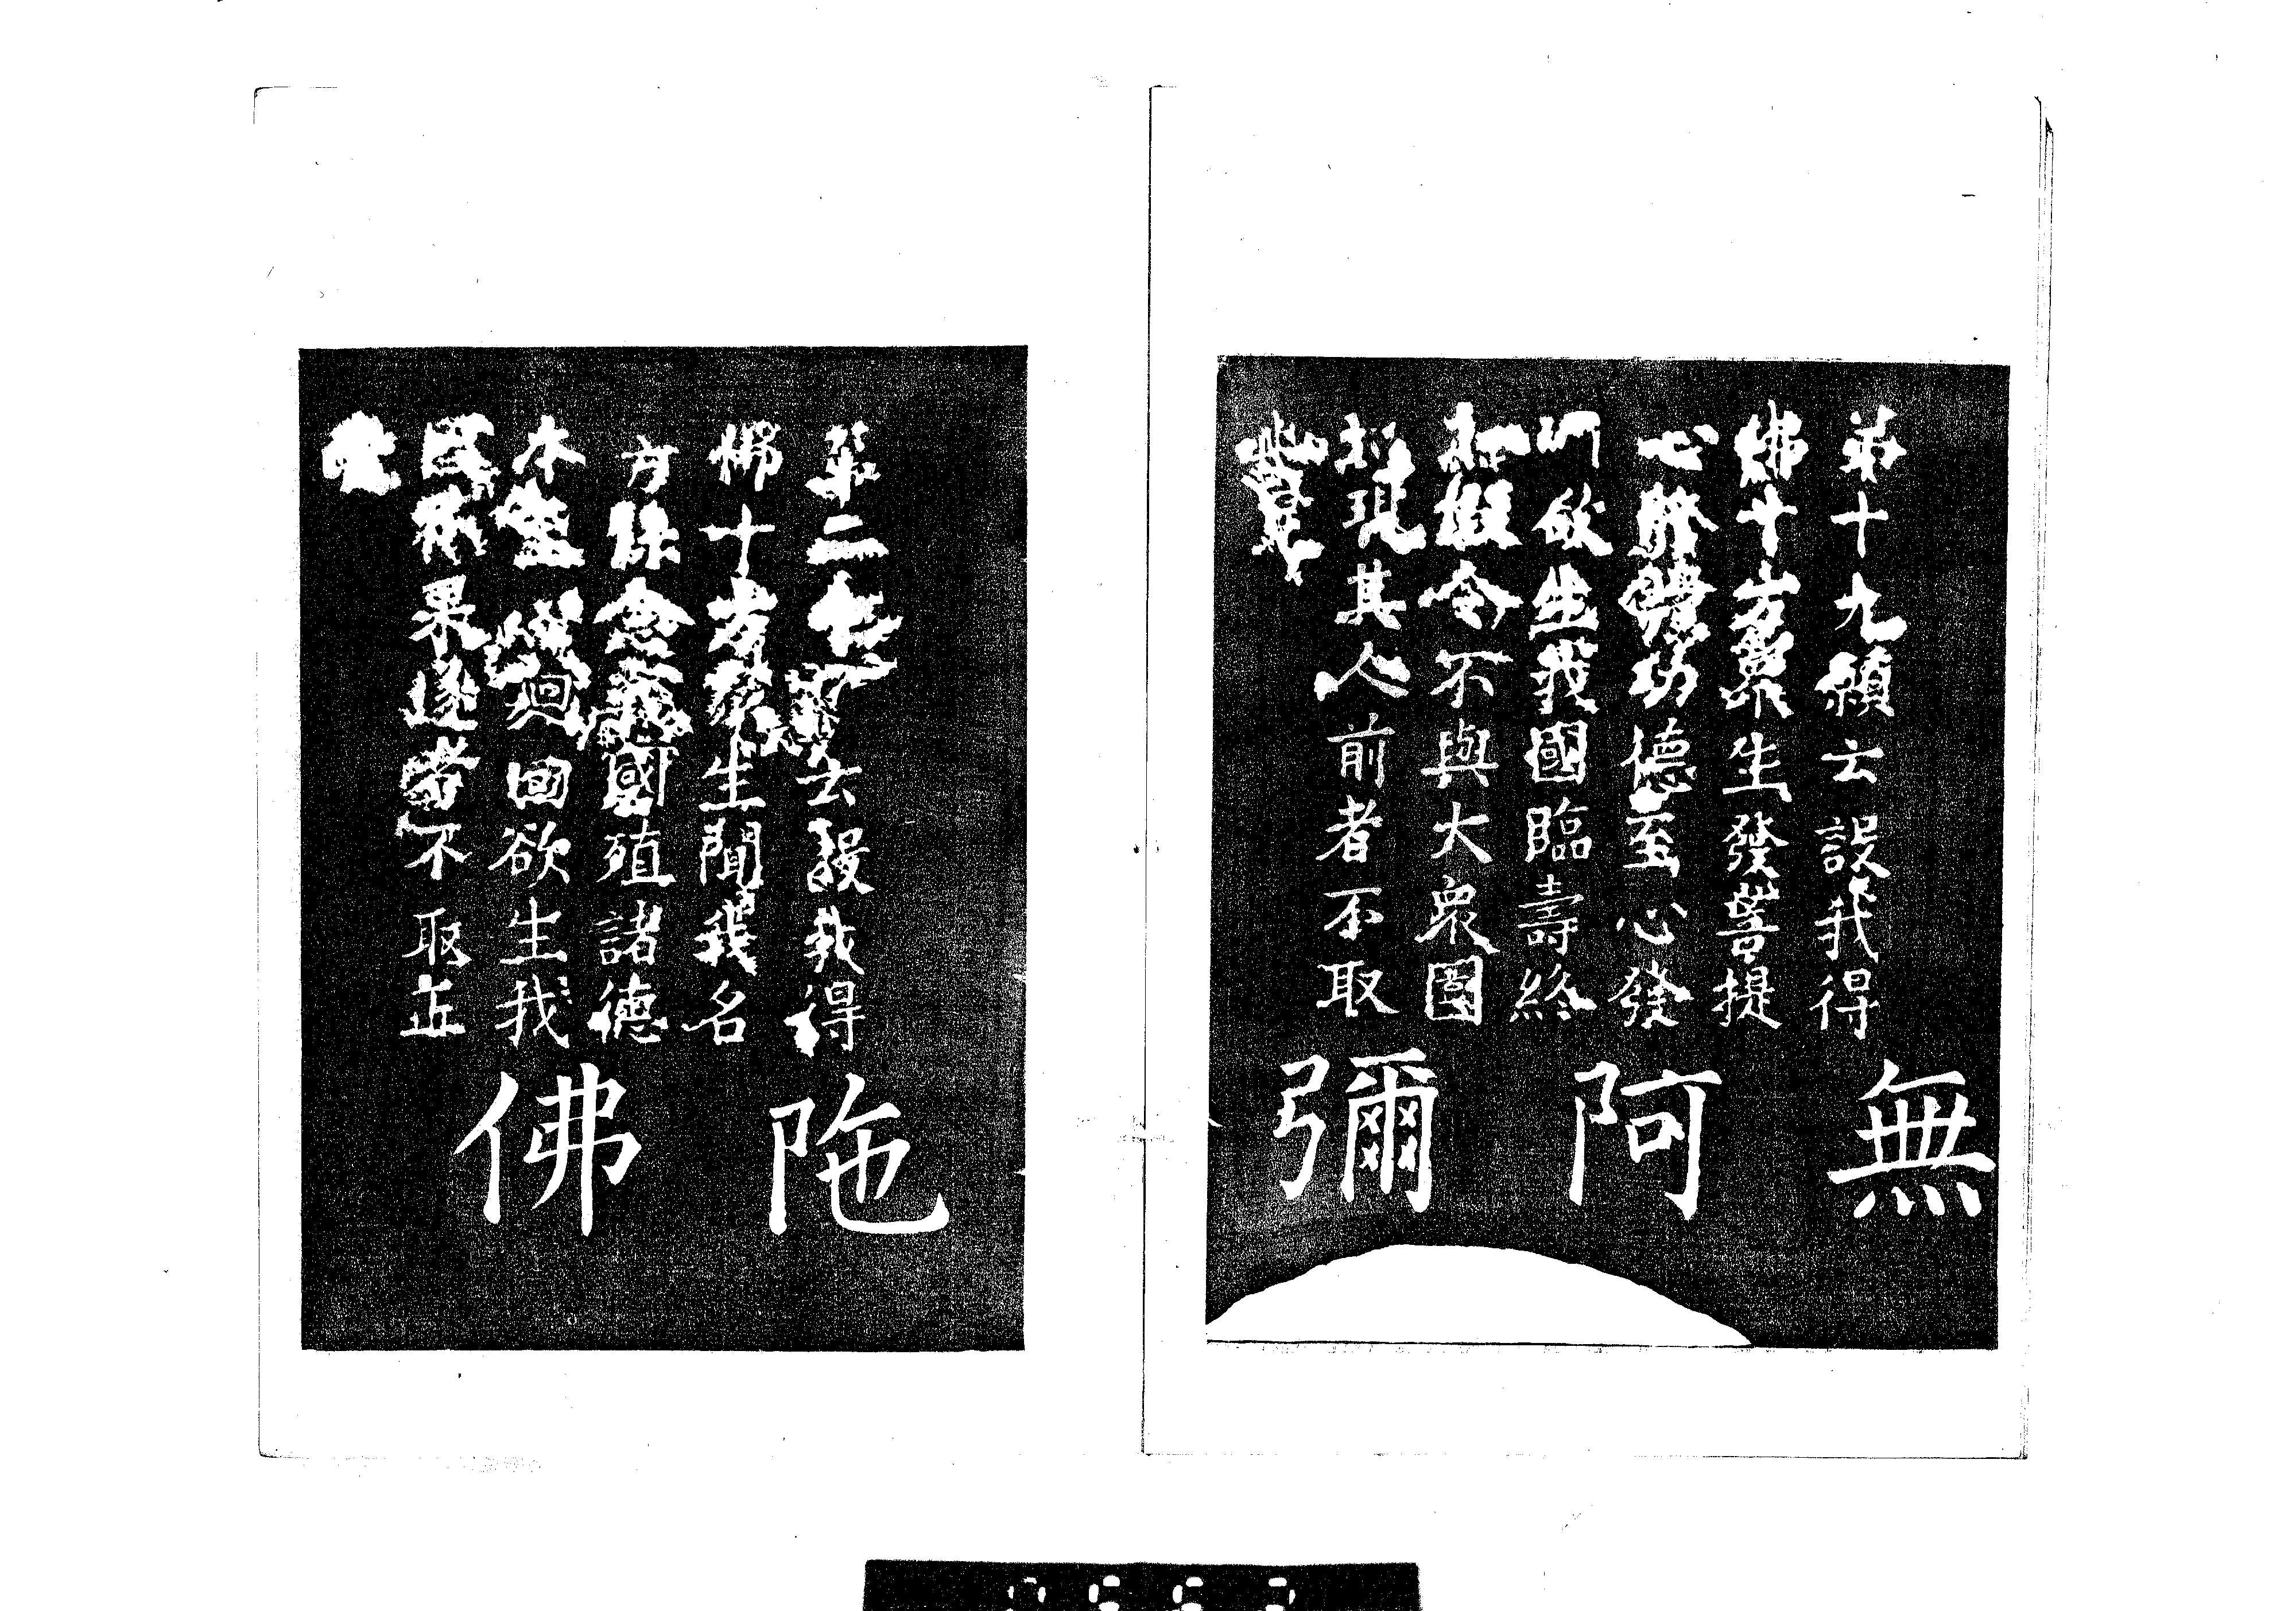 弟十九願云設我得
佛十方衆生發菩提
心脩諸功德至心發
欲生我國臨壽終
假令不與大衆圍
現其人前者不取
覺
無
阿
彌
第二云設我得
佛十方衆生聞我名
念我國殖諸德
本迴回欲生我
國果遂者不取正
覺
陁
佛